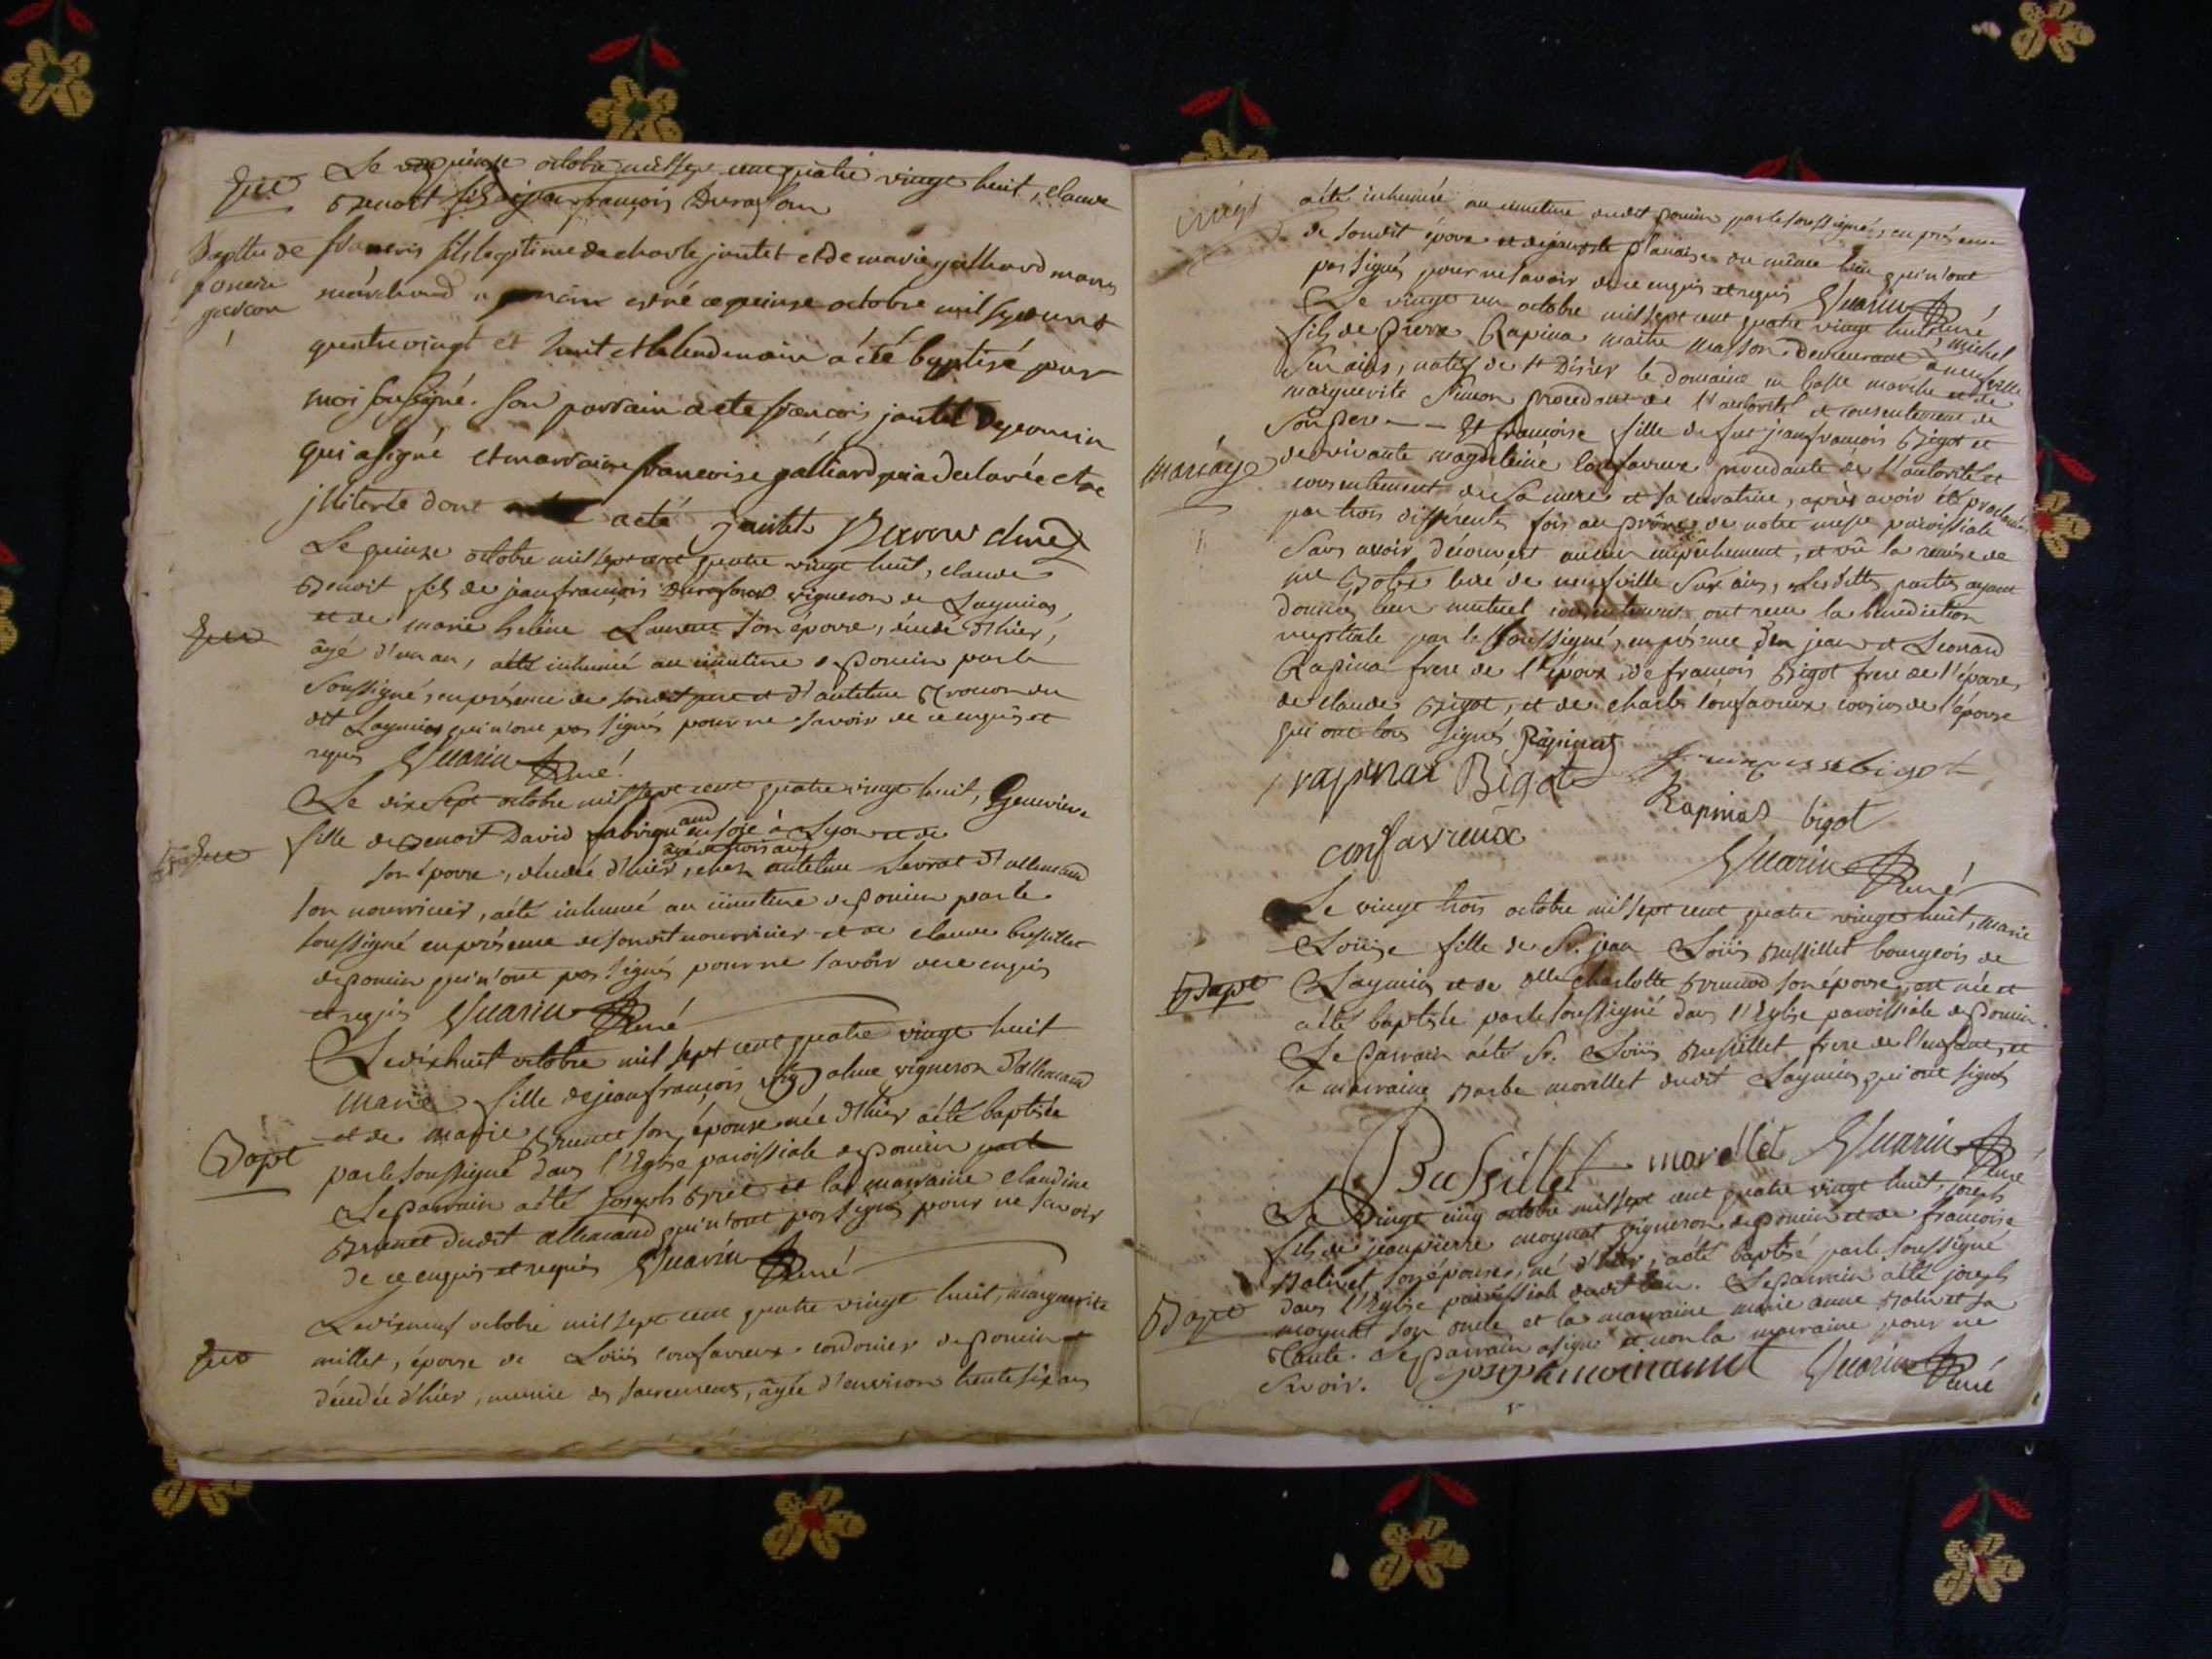 Le quinze octobre mil sept cent quatre vingt huit, claude
Benoit fils de jean françois Durafour
Baptte de
poncin
garcon
françois fils legitime de charle jantet et de marie galliard maries
marchand a poncin est né ce quinse octobre mil sept cent
quatre vingt et huit et le lendemain a été baptisé par
moi sousigné. son parrain a ete françois jantet de poncin
qui a signé et marraine francoise galliard qui a declarée etre
jlliterée dont acte jantet curé
Le quinze octobre mil sept cent quatre vingt huit, claude
Benoit fils de jean françois Durafour vigneron de Leymias,
et de marie heléne Laurent son épouse, décédé d'hier,
âgé d'un an, a été inhumé au cimetiere de poncin par le
soussigné, en présence de sondit pere et d'antelme du
dit Leymias qui n'ont pas signés pour ne savoir de ce enquis et
requis Guarin Curé
Le dix sept octobre mil sept cent quatre vingt huit, Genevieve
fille de Benoit David fabriquand en soie à Lyon et de
son épouse, décédée d'hier, âgée de trois ans chez antelme Levrat d'allemand
son nourricier, a été inhumée au cimetiere de poncin par le
soussigné en présence de sondit nourricier et de claude bussillet
de poncin qui n'ont pas signés pour ne savoir de ce enquis
et requis Guarin Curé
Le dix huit octobre mil sept cent quatre vingt huit
marie fille de jean françois vigneron d'allemand
Bapt
et de marie Brunet son épouse née d'hier a été baptisée
par le soussigné dans l'Eglise paroissiale de poncin
Le parrain a été joseph et la marraine claudine
Brunet dudit allemand qui n'ont pas signés pour ne savoir
de ce enquis et requis Guarin Curé
Le dix neuf octobre mil sept cent quatre vingt huit, marguerite
millet, épouse de Loüis confavreux cordonier de poncin
décédée d'hier, munie des sacrements, âgée d'environ trente six ans
a été inhumée au cimetiere dudit poncin par le soussigné, en présence
de sondit époux et de du même lieu qui n'ont
pas signés pour ne savoir de ce enquis et requis Guarin Curé
Le vingt un octobre mil sept cent quatre vingt huit, michel
fils de pierre Rapina maitre masson demeurant à neufville
sur ains, natif de st Disier le domaine en basse marche et de
marguerite simon procedant de l'autorité et consentement de
son pere — Et françoise fille de feu jean françois Bigot et
mariage
de vivante magdeleine confavreux procedante de l'autorité et
consentement de sa mere et sa curatrice, après avoir été proclamés
par trois différentes fois au prône de notre messe paroissiale
sans avoir découvert aucun empêchement, et vû la remise de
mr curé de neufville sur ains, lesdittes parties ayant
donnés leur mutuel consentement ont recu la bénédiction
nuptiale par le soussigné, en présence de jean et Leonard
Rapina frere de l'époux, de françois Bigot frere de l'épouse,
de claude Bigot, et de charle confavreux cousins de l'épouse
qui ont tous signés Rapinat
rapinat Bigot
Rapinat bigot
confavreux
Guarin Curé
Le vingt trois octobre mil sept cent quatre vingt huit, marie
Loüise fille de Sr. jean Loüis Bussillet bourgeois de
Bapt
Leymias et de dlle charlotte Brunod son épouse, est née et
a été baptisée par le soussigné dans l'Eglise paroissiale de poncin.
Le parrain a été Sr. Loüis Bussillet frere de l'enfant, et
la marraine Barbe morellet dudit Leymias qui ont signés
Bussillet morellet Guarin Curé
Le Vingt cinq octobre mil sept cent quatre vingt huit, joseph
fils de jean pierre moynat vigneron de poncin et de françoise
son épouse, né d'hier, a été baptisé par le soussigné
Bapt
dans l'Eglise paroissiale dudit lieu. Le parrain a été joseph
moynat son oncle et la marraine marie anne sa
tante. Le parrain a signé et non la marraine pour ne
savoir. Guarin Curé